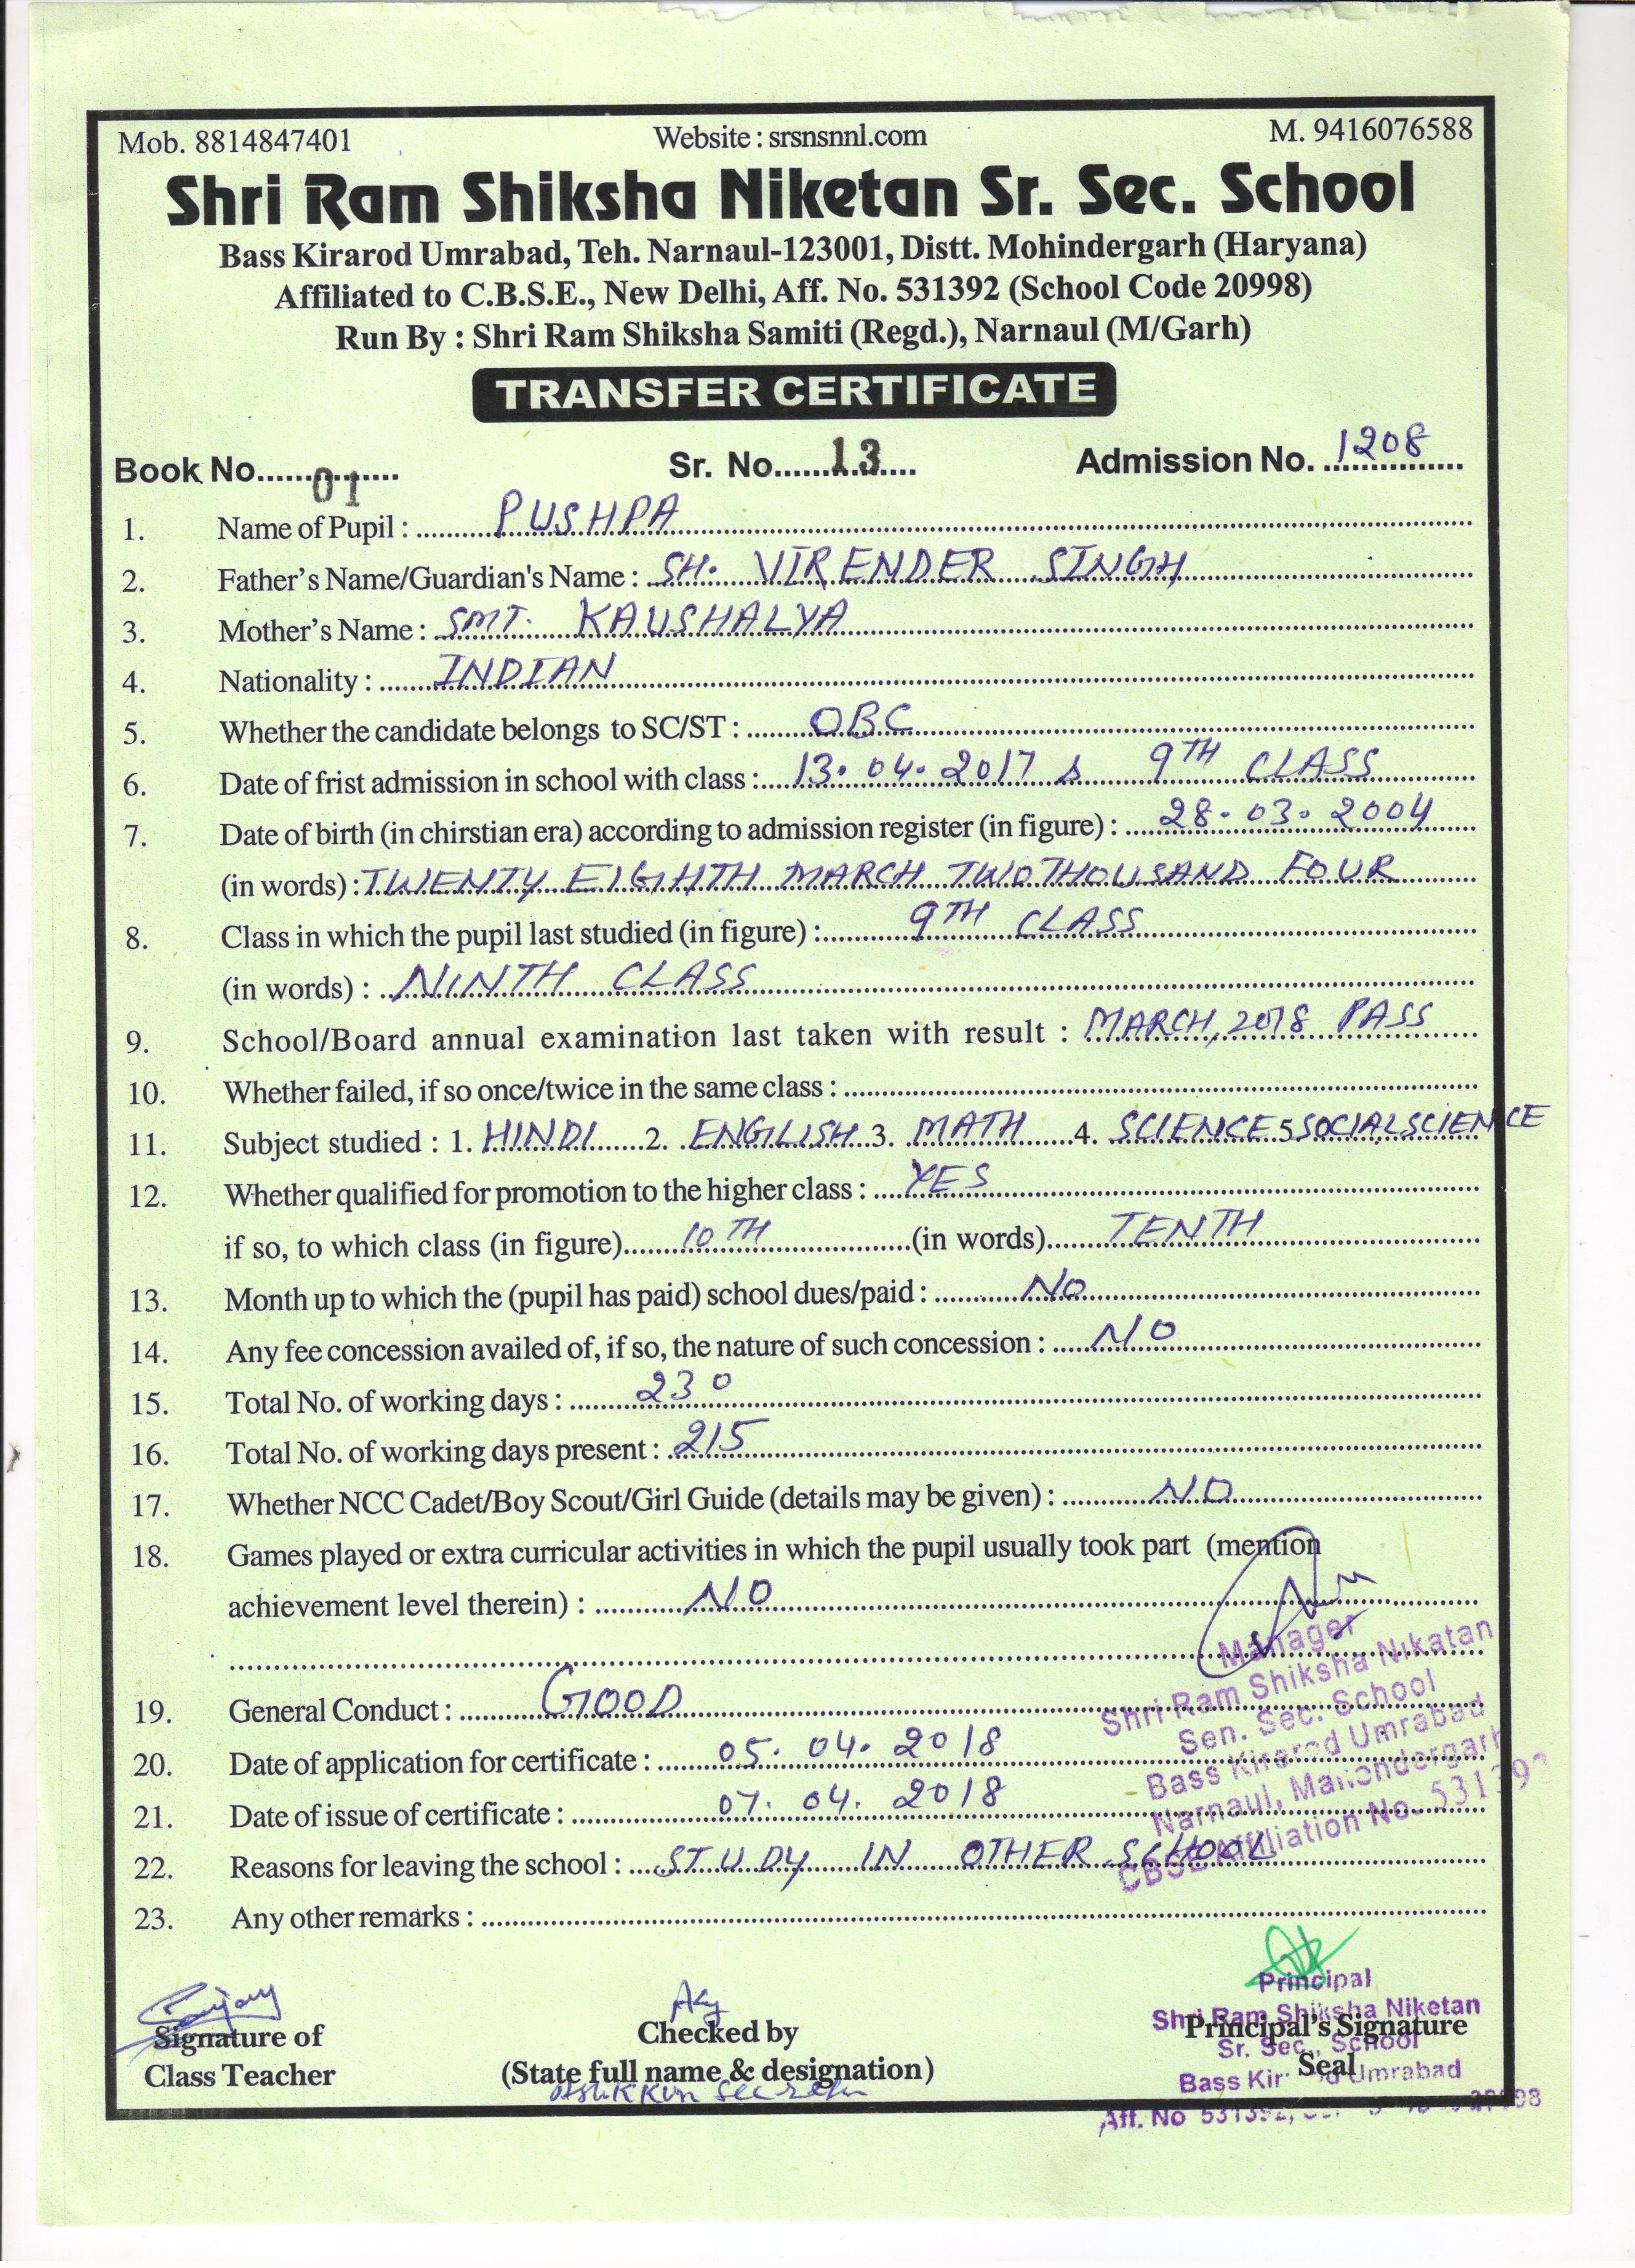 Mob. 8814847401 Website : srsnsnnl.com M. 9416076588
Shri Ram Shiksha Niketan Sr. Sec. School
Bass Kirarod Umrabad, Teh. Narnaul-123001, Distt. Mohindergarh (Haryana)
Affiliated to C.B.S.E., New Delhi, Aff. No. 531392 (School Code 20998)
Run By : Shri Ram Shiksha Samiti (Regd.), Narnaul (M/Garh)
TRANSFER CERTIFICATE
Book No. 01 Sr. No. 13 Admission No. 1208
1. Name of Pupil : PUSHPA
2. Father's Name/Guardian's Name : SH. VIRENDER SINGH
3. Mother's Name : SMT. KAUSHALYA
4. Nationality : INDIAN
5. Whether the candidate belongs to SC/ST : OBC
6. Date of frist admission in school with class : 13.04.2017 & 9TH CLASS
7. Date of birth (in chirstian era) according to admission register (in figure) : 28.03.2004
(in words) : TWENTY EIGHTH MARCH TWO THOUSAND FOUR
8. Class in which the pupil last studied (in figure) : 9TH CLASS
(in words) : NINTH CLASS
9. School/Board annual examination last taken with result : MARCH, 2018 PASS
10. Whether failed, if so once/twice in the same class :
11. Subject studied : 1. HINDI 2. ENGLISH 3. MATH 4. SCIENCE 5 SOCIAL SCIENCE
12. Whether qualified for promotion to the higher class : YES
if so, to which class (in figure) 10TH (in words) TENTH
13. Month up to which the (pupil has paid) school dues/paid : NO
14. Any fee concession availed of, if so, the nature of such concession : NO
15. Total No. of working days : 230
16. Total No. of working days present : 215
17. Whether NCC Cadet/Boy Scout/Girl Guide (details may be given) : NO
18. Games played or extra curricular activities in which the pupil usually took part (mention
achievement level therein) : NO
Manager
Shri Ram Shiksha Nikatan
Sen. Sec. School
Bass Kirarod Umrabad
Narnaul, Mahendergarh
CBSE Affiliation No. 531392
19. General Conduct : GOOD
20. Date of application for certificate : 05.04.2018
21. Date of issue of certificate : 07.04.2018
22. Reasons for leaving the school : STUDY IN OTHER SCHOOL
23. Any other remarks :
Principal
Shri Ram Shiksha Niketan
Sr. Sec., School
Bass Kir Umrabad
Aff. No 531392,
Signature of Checked by Principal's Signature
Class Teacher (State full name & designation) Seal